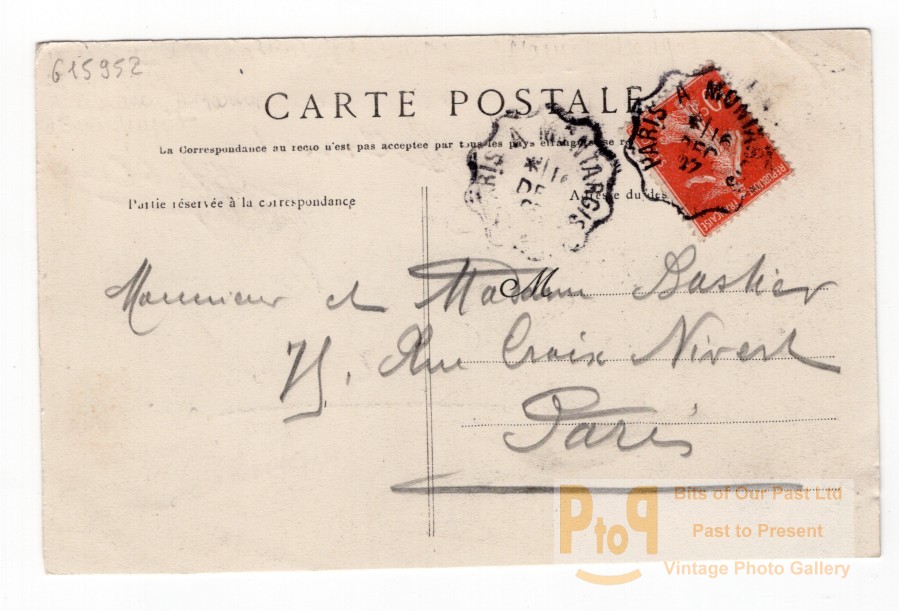 615952
CARTE POSTALE
La Correspondance au recto n'est pas acceptee par tous les pays etrangers se r
Partie réservée à la correspondance
Adresse du des
PARIS A MONTARGIS
DE
PARIS A MONTARGIS
DEC
07
REPUBLIQUE FRANÇAISE
Monsieur et Madame Bastier
M
75, Rue Croix Nivert
Paris
PtoP
Bits of Our Past Ltd
Past to Present
Vintage Photo Gallery